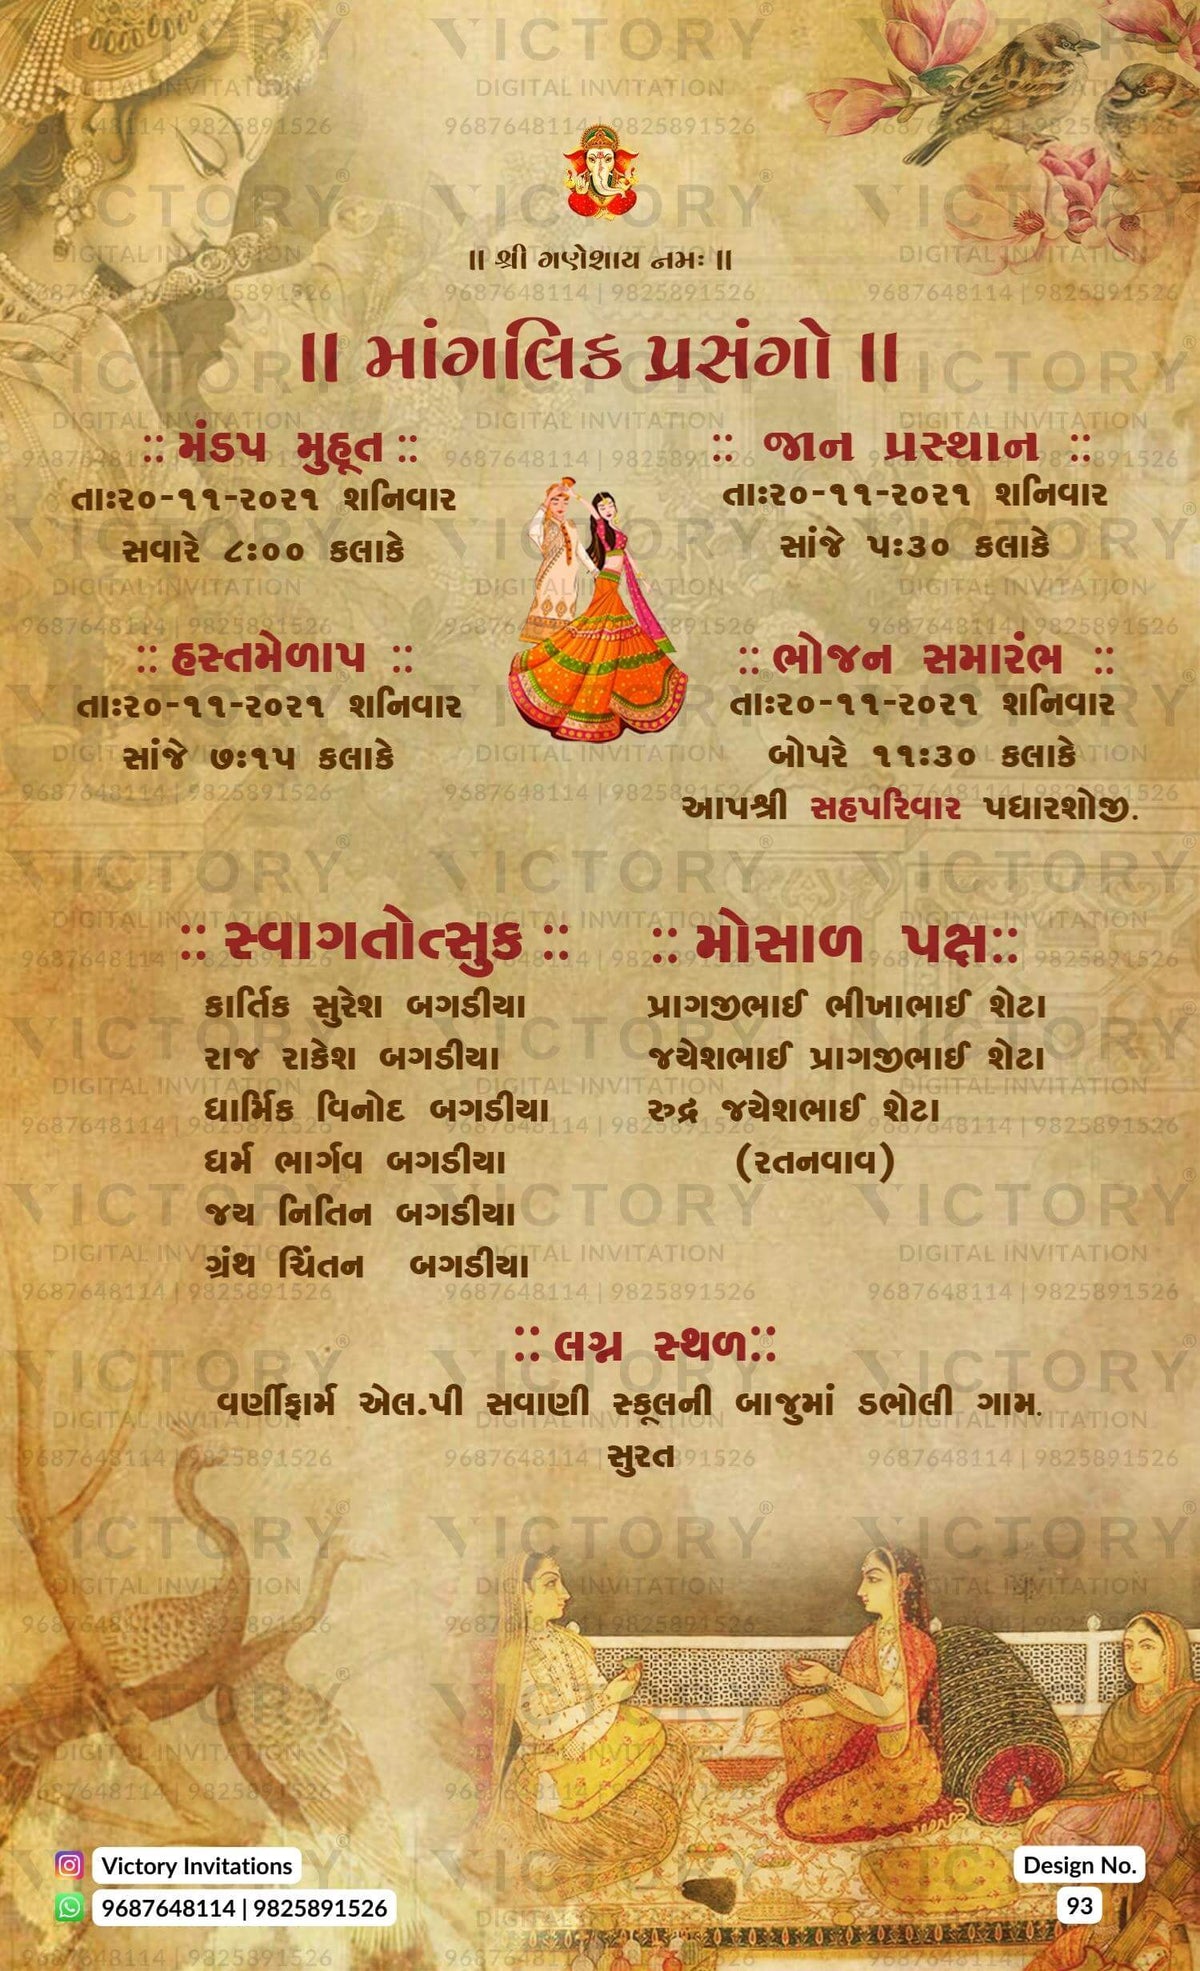 ॥ શ્રી ગણેશાય નમઃ ॥
॥ માંગલિક પ્રસંગો ॥
:: મંડપ મુહૂત ::
તાઃ૨૦-૧૧-૨૦૨૧ શનિવાર
સવારે ૮ઃ૦૦ કલાકે
:: જાન પ્રસ્થાન ::
તાઃ૨૦-૧૧-૨૦૨૧ શનિવાર
સાંજે ૫ઃ૩૦ કલાકે
:: હસ્તમેળાપ ::
તાઃ૨૦-૧૧-૨૦૨૧ શનિવાર
સાંજે ૭ઃ૧૫ કલાકે
:: ભોજન સમારંભ ::
તાઃ૨૦-૧૧-૨૦૨૧ શનિવાર
બોપરે ૧૧ઃ૩૦ કલાકે
આપશ્રી સહપરિવાર પધારશોજી.
:: સ્વાગતોત્સુક ::
કાર્તિક સુરેશ બગડીયા
રાજ રાકેશ બગડીયા
ધાર્મિક વિનોદ બગડીયા
ધર્મ ભાર્ગવ બગડીયા
જય નિતિન બગડીયા
ગ્રંથ ચિંતન બગડીયા
:: મોસાળ પક્ષ::
પ્રાગજીભાઈ ભીખાભાઈ શેટા
જયેશભાઈ પ્રાગજીભાઈ શેટા
રુદ્ર જયેશભાઈ શેટા
(રતનવાવ)
:: લગ્ન સ્થળ::
વર્ણીફાર્મ એલ.પી સવાણી સ્કૂલની બાજુમાં ડભોલી ગામ.
સુરત
Victory Invitations
9687648114 | 9825891526
Design No.
93
VICTORY®
DIGITAL INVITATION
9687648114 | 9825891526